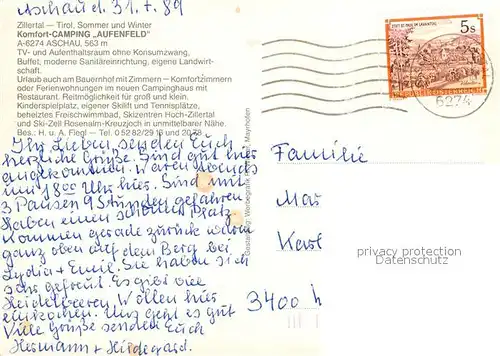 Aschau d. 31.7.89
Zillertal — Tirol, Sommer und Winter
Komfort-CAMPING „AUFENFELD"
A-6274 ASCHAU, 563 m
TV- und Aufenthaltsraum ohne Konsumzwang,
Buffet, moderne Sanitäreinrichtung, eigene Landwirt-
schaft.
Urlaub auch am Bauernhof mit Zimmern — Komfortzimmern
oder Ferienwohnungen im neuen Campinghaus mit
Restaurant. Reitmöglichkeit für groß und klein.
Kinderspielplatz, eigener Skilift und Tennisplätze,
beheiztes Freischwimmbad, Skizentren Hoch-Zillertal
und Ski-Zell Rosenalm-Kreuzjoch in unmittelbarer Nähe.
Bes.: H. u. A. Fiegl — Tel. 0 52 82/29 16 und
Ihr Lieben senden Euch
herzliche Grüße. Sind gut hier
angekommen. Waren abends
um 18.00 Uhr hier. Sind mit
3 Pausen 9 Stunden gefahren
Haben einen schönen Platz
Kommen gerade zurück waren
ganz oben auf dem Berg bei
Lydia + Emil. Sie haben sich
sehr gefreut. Es gibt viele
Heidelbeeren. Wollen hier
einkochen. Uns geht es gut
Viele Grüße senden Euch
Hermann + Hildegard.
Gestaltung: Werbegrafik Mayrhofen
STIFT ST. PAUL IM LAVANTTAL
5s
REPUBLIK ÖSTERREICH
6274
Familie
Mar
Karl
3400 h
privacy protection
Datenschutz